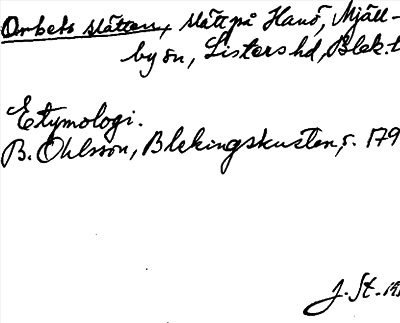 Orbets slätten, slätt på Hanö, Mjäll-
by sn, Listers hd, Blek. l
Etymologi.
B. Ohlsson, Blekingskusten, s. 179
J. St.